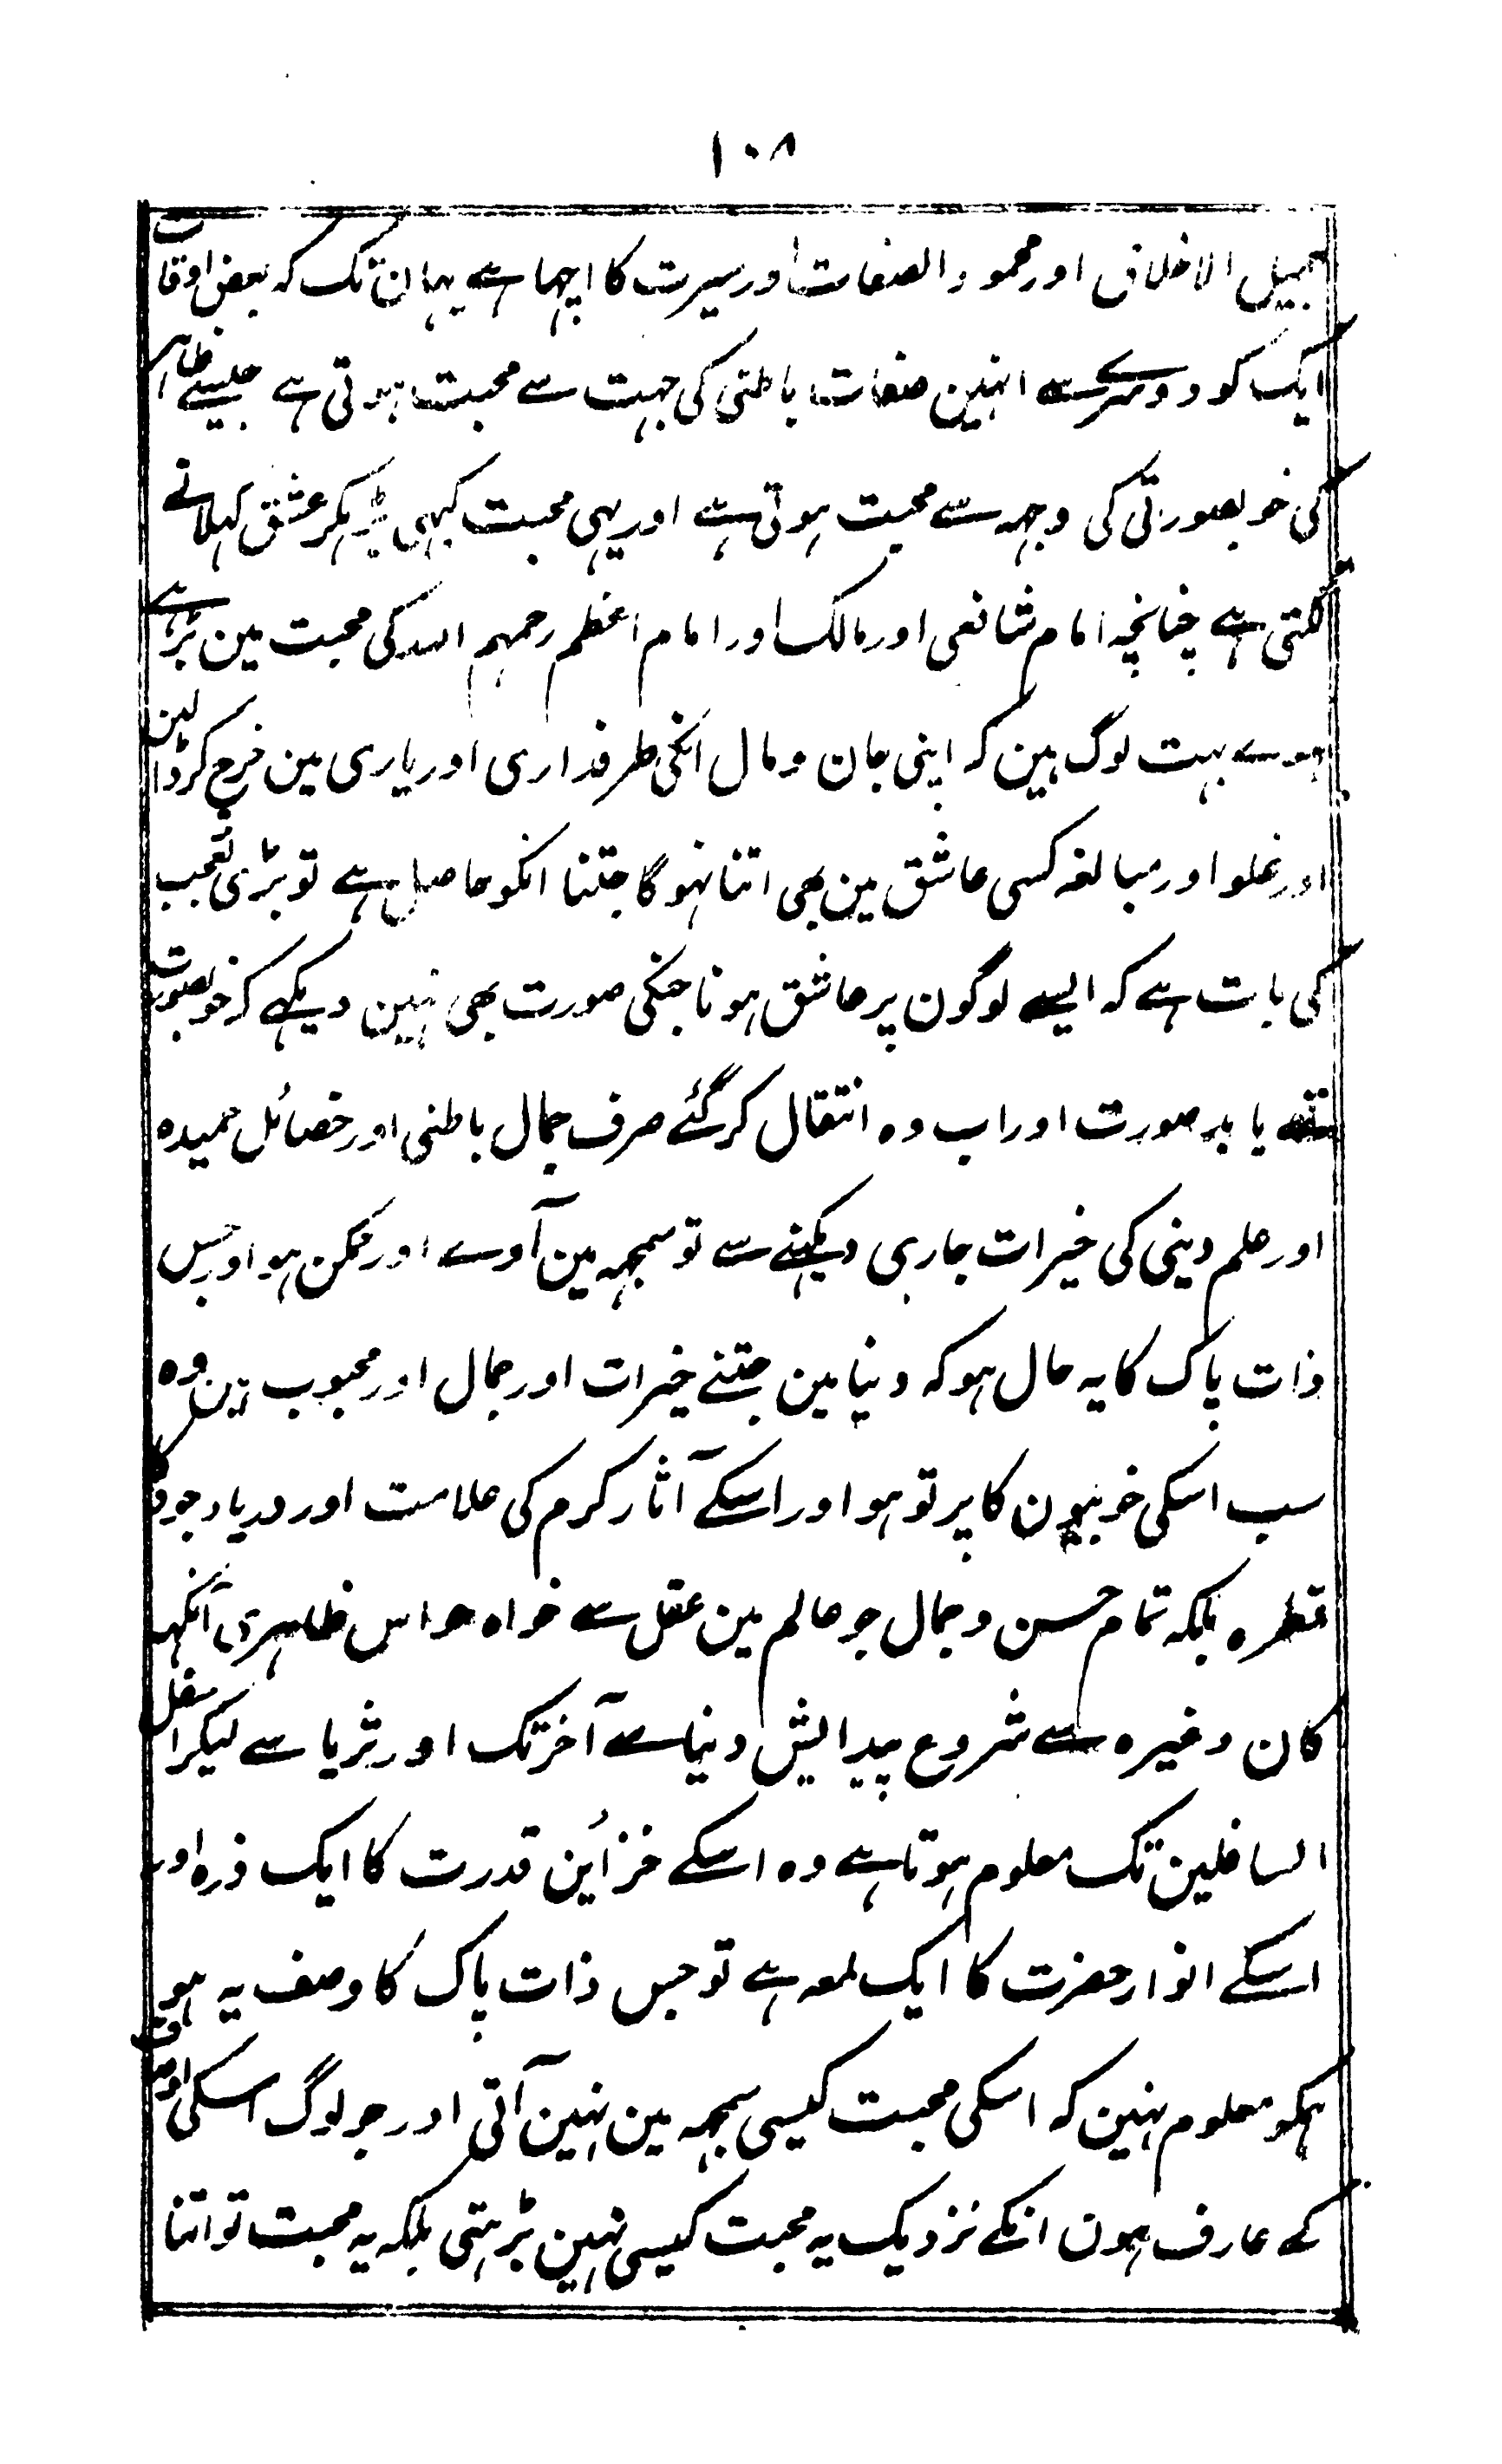 ۱۰۸
جمیل الاخلاق اور محمود الصفات اور سیرت کا اچھا ہے یہان تک کہ بعض اوقات
ایک کو دوسرے سے انہین صفات باطنی کی جہت سے محبت ہوتی ہے جیسے ظاہر
کی خوبصورتی کی وجہہ سے محبت ہوتی ہے اور یہی محبت کبہی بڑہکر عشق کہلانے
لگتی ہے چنانچہ امام شافعی اور مالک اور امام اعظم رحمہم اللہ کی محبت مین بڑہے
ہوے بہت لوگ ہین کہ اپنی جان و مال انکی طرفداری اور یاری مین خرچ کر ڈالین
اور غلو اور مبالغہ کسی عاشق مین بھی اتنا نہوگا جتنا انکو حاصل ہے تو بڑی تعجب
کی بات ہے کہ ایسے لوگون پر عاشق ہونا جنکی صورت بھی نہین دیکہے کہ خوبصورت
تھے یا بدصورت اور اب وہ انتقال کر گئے صرف جمال باطنی اور خصائل حمیدہ
اور علم دینی کی خیرات جاری دیکہنے سے تو سمجہہ مین آوے اور ممکن ہو اور جس
ذات پاک کا یہ حال ہو کہ دنیا مین جتنے خیرات اور جمال اور محبوب ہین وہ
سب اسکی خوبیون کا پرتو ہو اور اسکے آثار کرم کی علامت اور دریا وجود کا
قطرہ بلکہ تمام حسن و جمال جو عالم مین عقل سے خواہ حواس ظاہری آنکہہ
کان وغیرہ سے شروع پیدایش دنیا سے آخر تک اور ثریا سے لیکر اسفل
السافلین تک معلوم ہوتا ہے وہ اسکے خزاین قدرت کا ایک ذرہ اور
اسکے انوار حضرت کا ایک لمعہ ہے تو جس ذات پاک کا وصف یہ ہو
ہمکو معلوم نہین کہ اسکی محبت کیسی سمجہہ مین نہین آتی اور جو لوگ اسکی اوصاف
کے عارف ہون انکے نزدیک یہ محبت کیسی نہین بڑہتی بلکہ یہ محبت تو اتنا